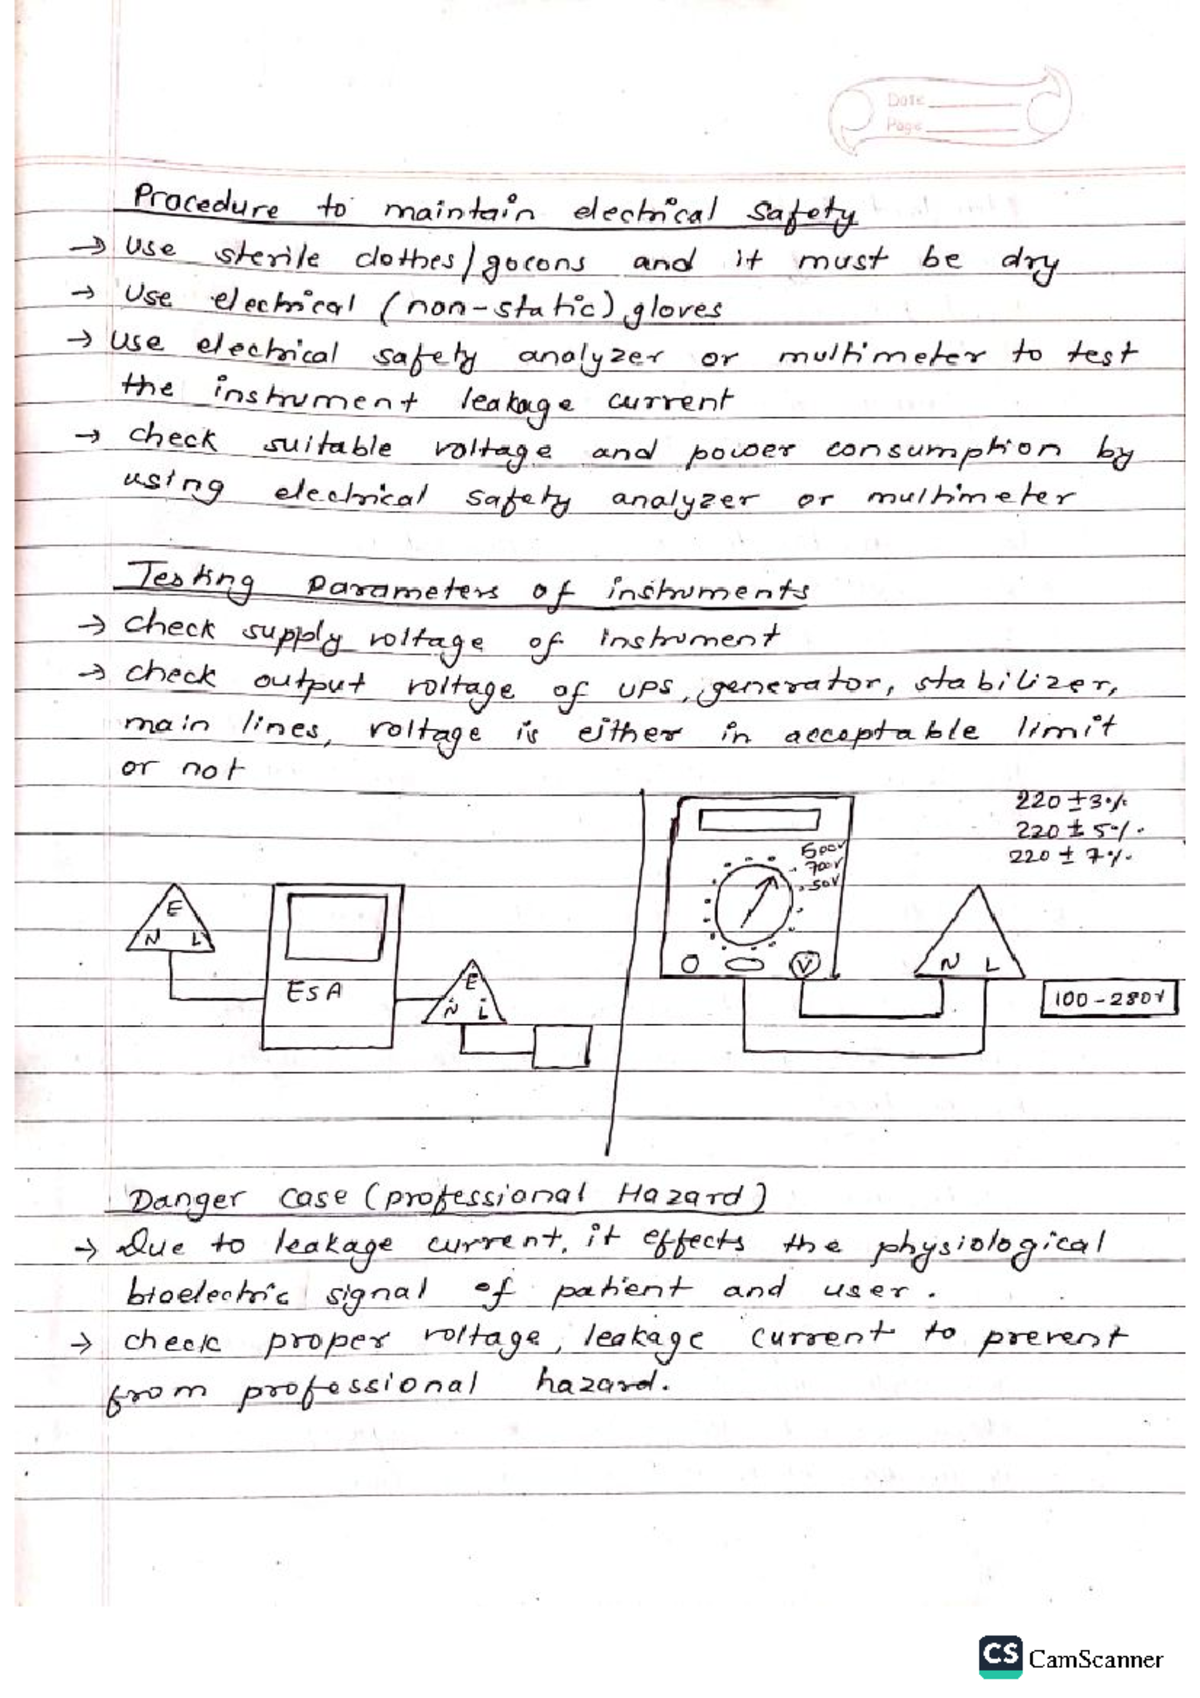 Date
Page
Procedure to maintain electrical safety
→ Use sterile clothes/gowns and it must be dry
→ Use electrical (non-static) gloves
→ Use electrical safety analyzer or multimeter to test
the instrument leakage current
→ check suitable voltage and power consumption by
using electrical safety analyzer or multimeter
Testing Parameters of instruments
→ check supply voltage of instrument
→ check output voltage of UPS, generator, stabilizer,
main lines, voltage is either in acceptable limit
or not
220 ± 3%
220 ± 5%.
220 ± 7%.
500V
700V
50V
E
N L
ESA
E
N L
V
N L
100-280V
Danger case (professional Hazard)
→ Due to leakage current, it effects the physiological
bioelectric signal of patient and user.
→ check proper voltage, leakage current to prevent
from professional hazard.
CS CamScanner